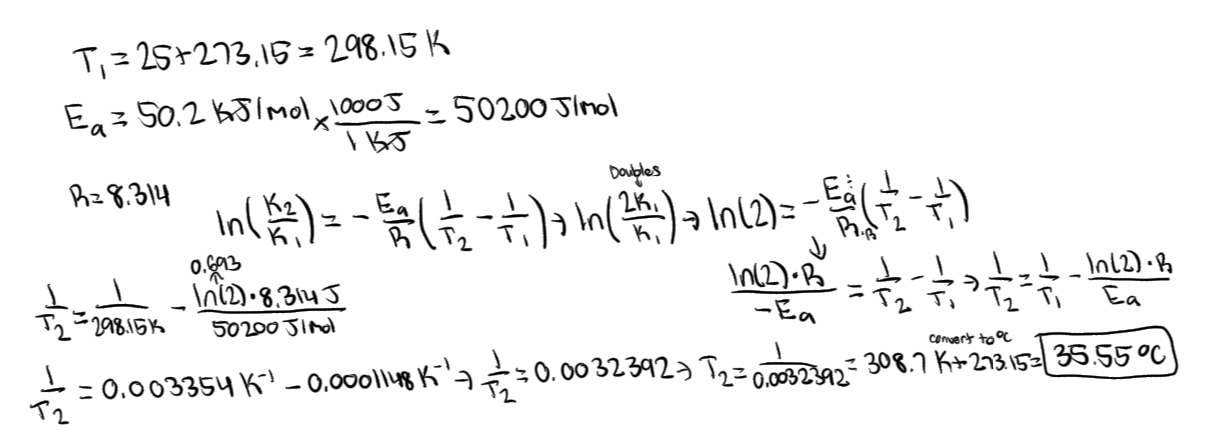 T₁ = 25 + 273.15 = 298.15 K
Eₐ = 50.2 KJ/mol × 1000J / 1 KJ = 50200 J/mol
R = 8.314
Doubles
ln(K₂/K₁) = -Eₐ/R (1/T₂ - 1/T₁) → ln(2K₁/K₁) → ln(2) = -Eₐ/R·R (1/T₂ - 1/T₁)
ln(2)·R / -Eₐ = 1/T₂ - 1/T₁ → 1/T₂ = 1/T₁ - ln(2)·R / Eₐ
0.693
1/T₂ = 1/298.15K - ln(2)·8.314 J / 50200 J/mol
convert to °C
1/T₂ = 0.003354 K⁻¹ - 0.0001148 K⁻¹ → 1/T₂ = 0.0032392 → T₂ = 1/0.0032392 = 308.7 K + 273.15 = 35.55 °C